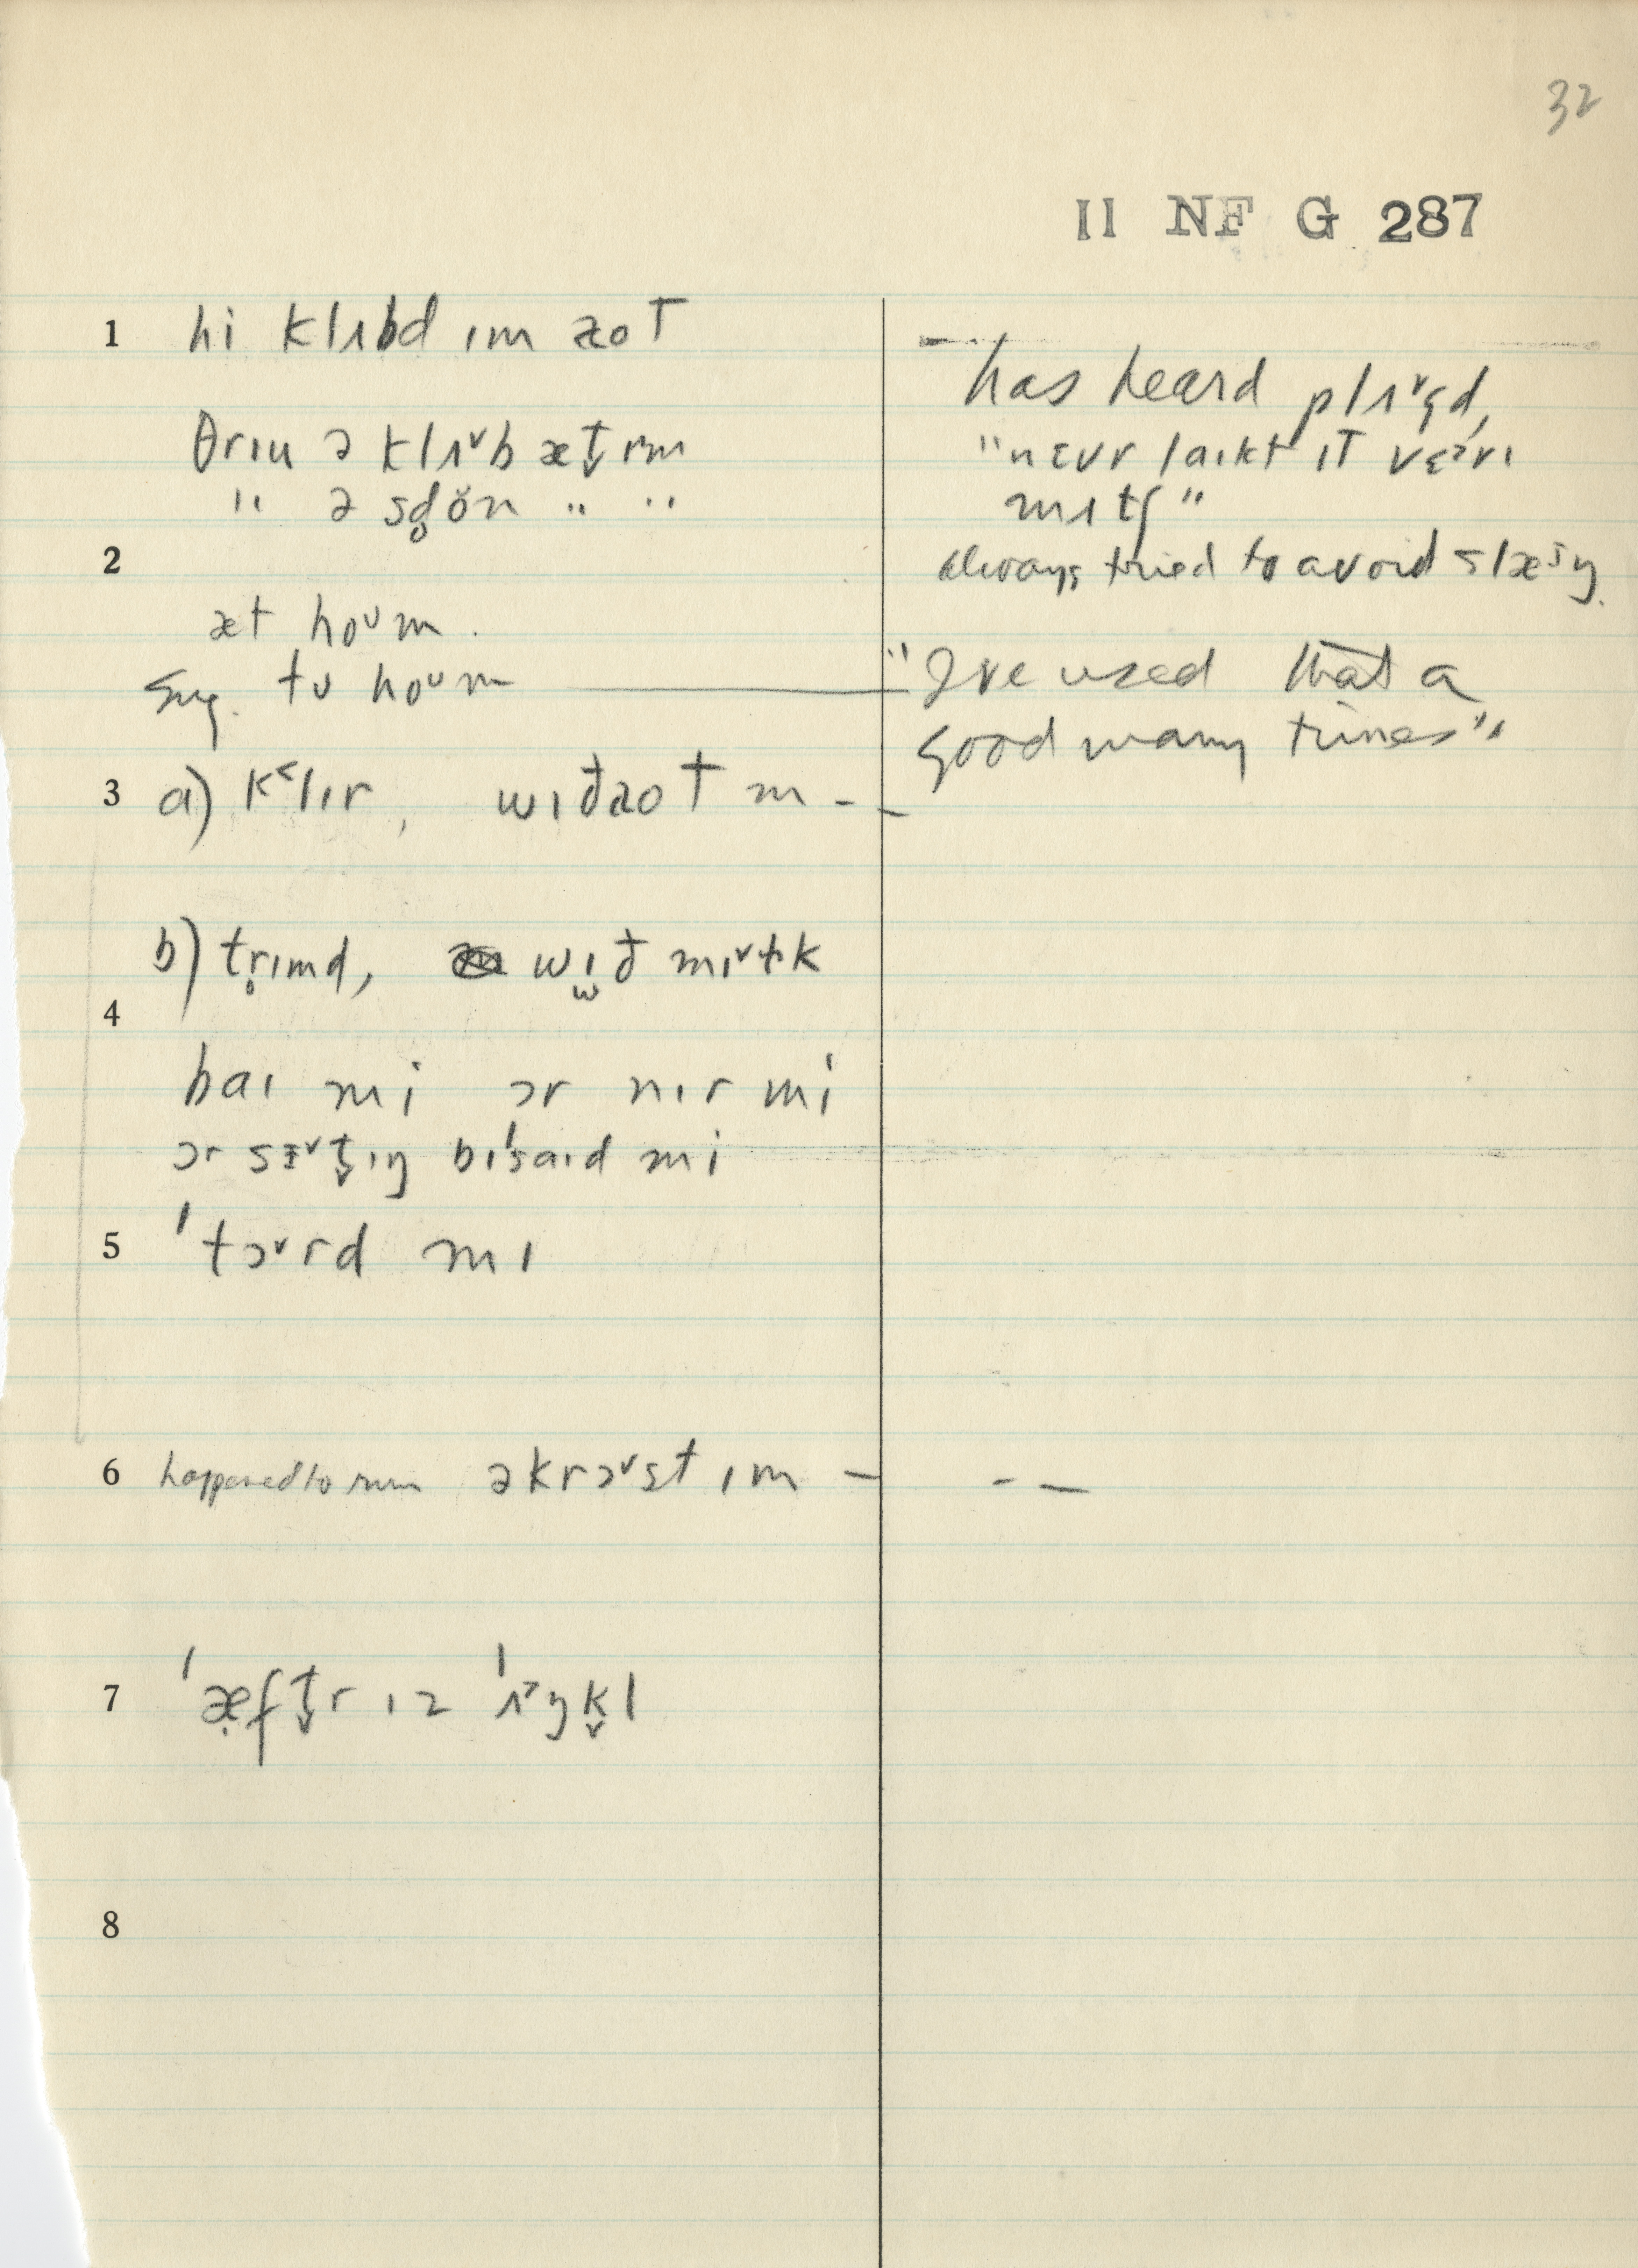 32
II NF G 287
1 hi klʌbd ɪm aoT
θrɪu ə klʌᵛb æt̬ ɪm
" ə sd̥ŏn " "
2
æt hoᴜm.
sug. tʊ hoᴜm
3 a) k˂lɪr, wɪðaoT m - -
b) tr̥ɪmd, wɪð mɪᵛɫk
4
baɪ mi ɔr nɪr mi
ɔr sɪᵛt̬ɪŋ bɪˈsaɪd mi
5 ˈtɔᵛrd mɪ
6 happened to run əkrɔᵛst ɪm - - -
7 ˈæ̣ft̬r ɪz ˈʌ˃ŋk̬l
8
- has heard plʌᵛgd,
"nɛvr laɪkt ɪT vɛ˃rɪ
mʌtʃ"
always tried to avoid slæŋ.
"I've used that a
good many times"